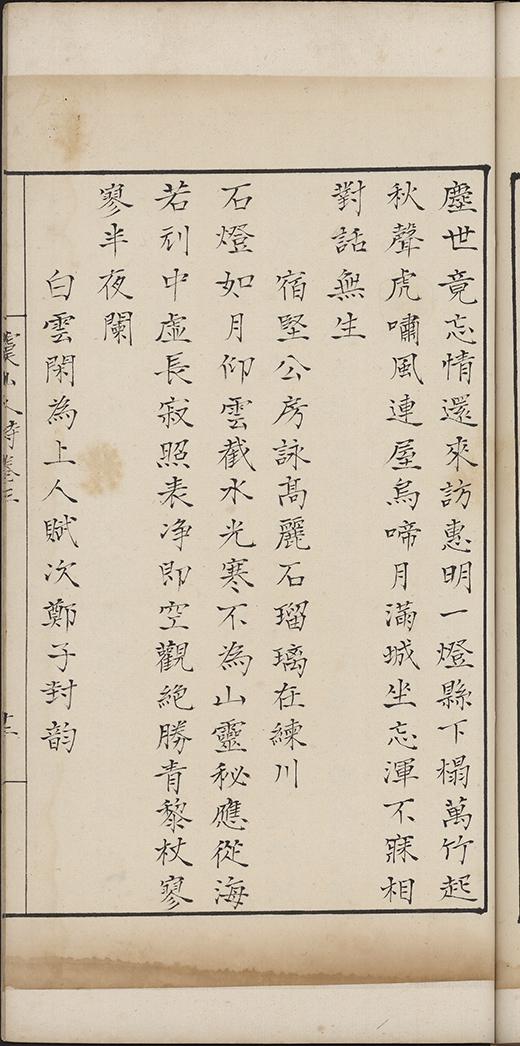 塵世竟忘情還來訪惠明一燈縣下榻萬竹起
秋聲虎嘯風連屋烏啼月滿城坐忘渾不寐相
對話無生
宿堅公房詠髙麗石瑠璃在練川
石燈如月仰雲截水光寒不為山靈秘應從海
若刓中虛長寂照表净即空觀絶勝青黎杖寥
寥半夜闌
白雲閑為上人賦次鄭子封韵
人詩卷三